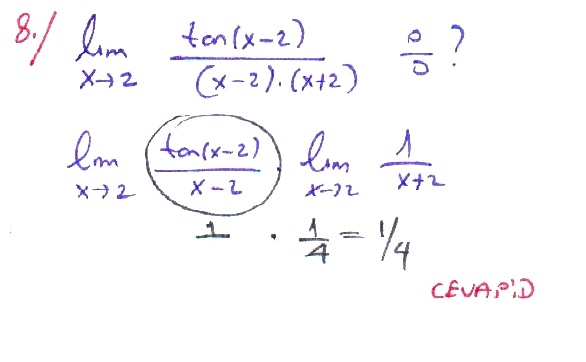 8./ lim x→2 tan(x-2) / (x-2).(x+2) 0/0 ?
lim x→2 tan(x-2) / x-2 . lim x→2 1 / x+2
1 . 1/4 = 1/4
CEVAP:D